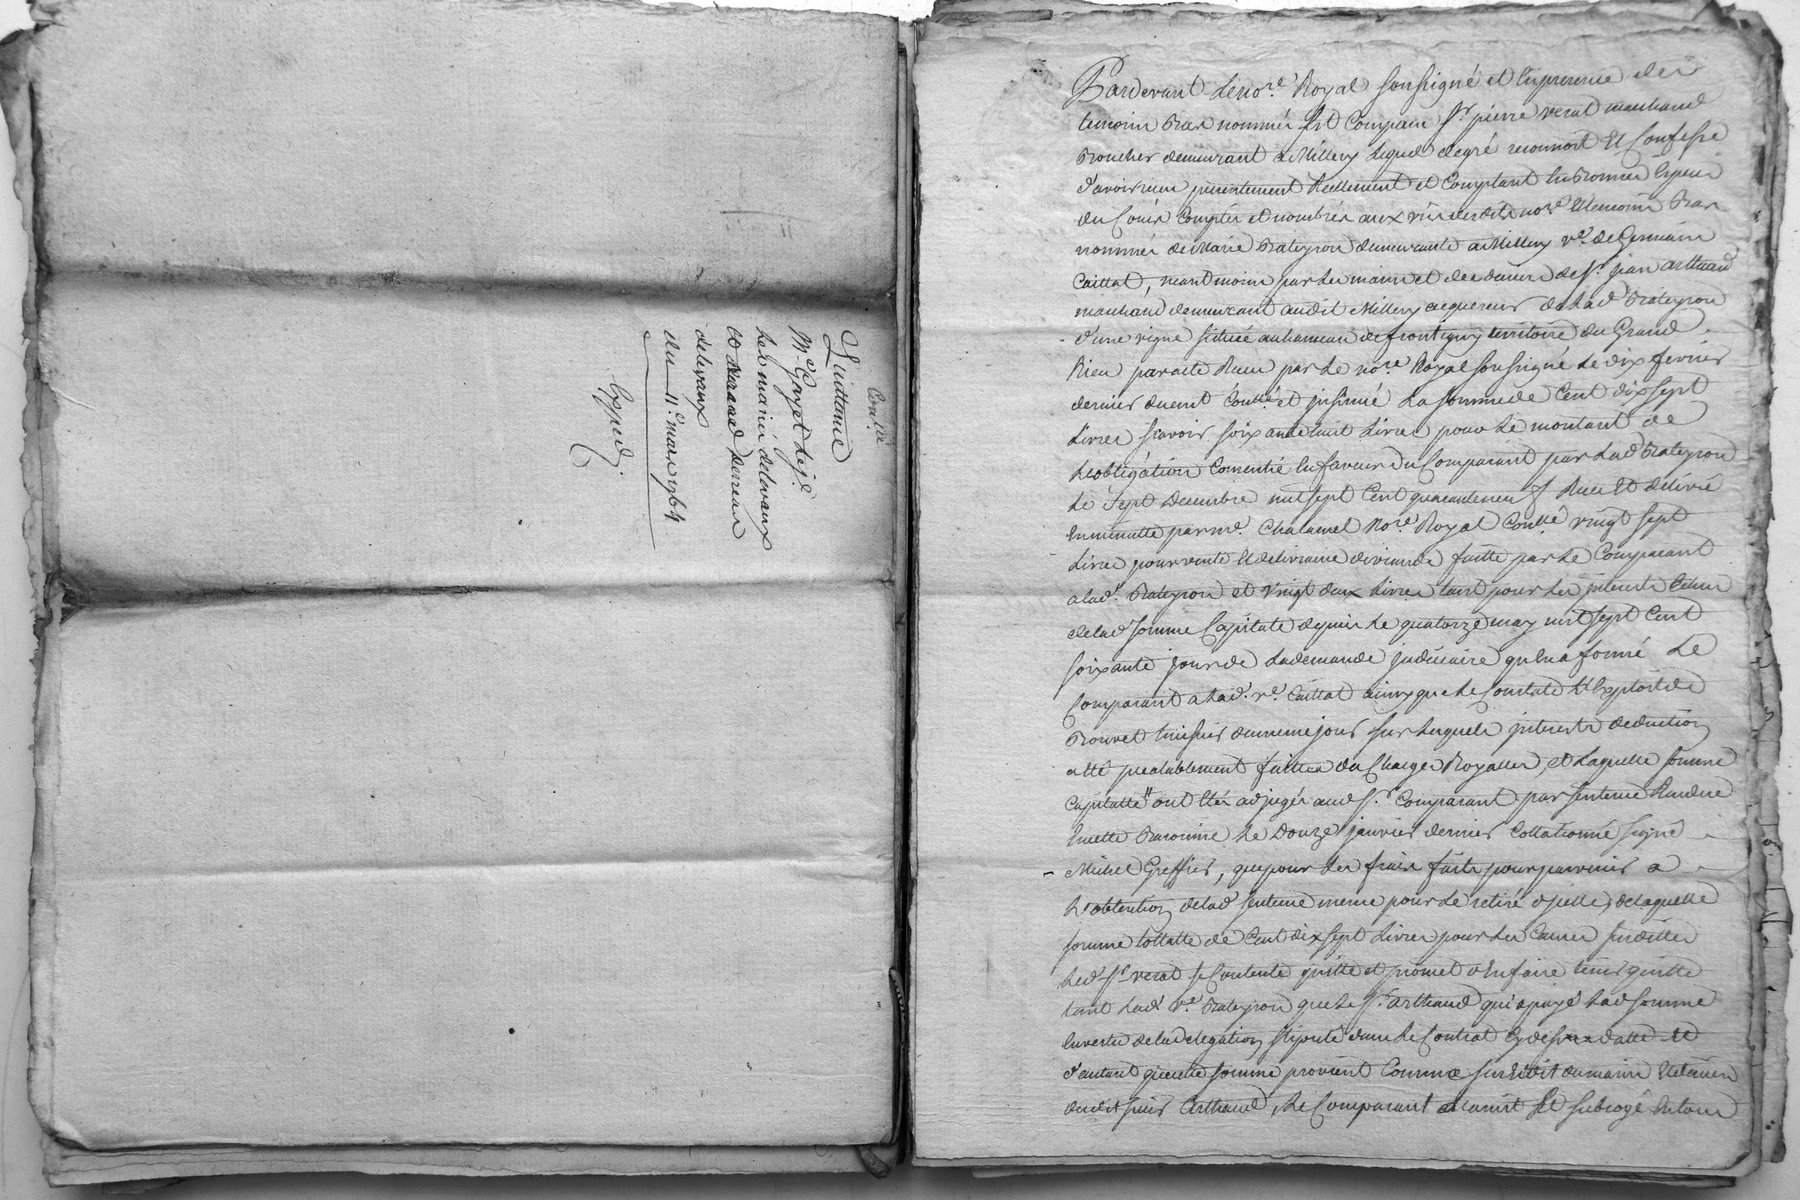 Con.lé
Quittance
Mre Goyet
Les mariés delevaux
delevaux
du 11e mars 1764
Expedié.
Pardevant Le no.re Royal soussigné et En presence des
temoins Bas nommés fut Comparu Sr. pierre verat marchand
Boucher demeurant a Millery Lequel de gré reconnoit Et Confesse
d'avoir reçu presentement Reellement et Comptant En Bonnes Espèces
du Cours Comptés et nombrés aux vües dudit no.re Et temoins Bas
nommés de Marie Bateyron demeurante a Millery v.e de Germain
Caillat, neantmoins par les mains et des deniers de Sr. jean arthaud
marchand demeurant audit Millery acquereur de Lad. Bateyron
d'une vigne Située au hameau de frontigny territoire du Grand
Rieu par acte Reçu par Le no.re Royal soussigné Le dix fevrier
dernier duement Contllé et insinué La somme de Cent dix sept
Livres scavoir soixante huit Livres pour Le montant de
L'obligation Consentie En faveur du Comparant par Lad. Bateyron
Le Sept Decembre mil sept Cent quarante neuf Reçu Et delivré
En minutte par me. Chalamel No.re Royal Contllé vingt sept
Livres pour vente Et delivrance de viande faitte par Le Comparant
a Lad. Bateyron et vingt deux Livres tant pour Les interets
de Lad. somme Capitale depuis Le quatorze may mil sept Cent
soixante jour de La demande judiciaire qu'En a formé Le
Comparant a Lad. v.e Caillat ainsy que Le Constate L'Exploit de
Bouvet huissier du meme jour sur Lesquels interets deduction
a été prealablement faitte des Charges Royalles, et Laquelle somme
Capitalle ont Etés adjugés aud. Sr. Comparant par sentence Rendue
En cette Baronnie Le Douze janvier dernier Collationné signé
Michel Greffier, que pour Les frais faits pour parvenir a
L'obtention de Lad. sentence meme pour Le retiré d'jcelle, de laquelle
somme tottalle de Cent dix sept Livres pour Les Causes susdittes
Led. Sr. verat se Contente quitte et promet d'En faire tenir quitte
tant Lad. v.e Bateyron que Le Sr. arthaud qui a payé Lad. somme
En vertu de La delegation stipulée dans Le Contrat Cy dessus datté Et
d'autant que cette somme provient Comme sus Est dit des mains Et deniers
dudit sieur Arthaud, Le Comparant Le subrogé En tous